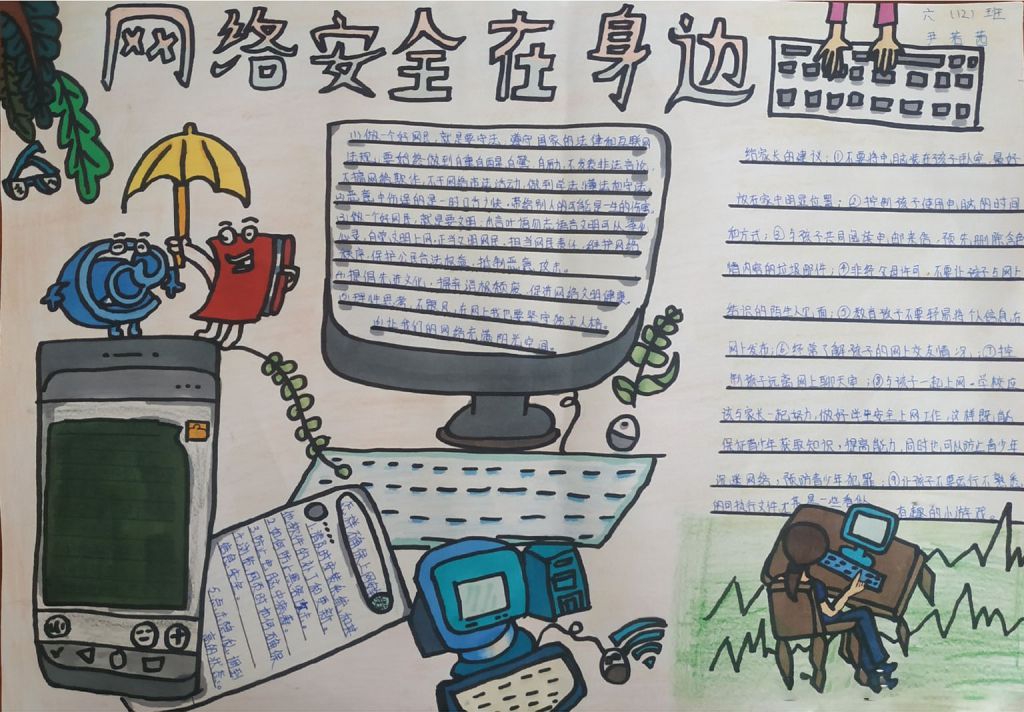 网络安全在身边
六（12）班
尹若茜
（1）做一个好网民，就是要守法，遵守国家的法律和互联网
法规，要始终做到自重自省自警、自励，不发表非法言论
不搞网络欺诈，不干网络非法活动，做到学法懂法和守法
（2）恶意中伤得的是一时口舌之快，带给别人的可能是一生的伤害。
（3）做一个好网民，就是要文明，
自觉文明上网，正当文明网民，担当网民责任，维护网络
秩序，保护公民合法权益，抵制恶意攻击。
（4）提倡先进文化，摒弃消极颓废，促进网络文明健康。
（5）理性思考，不跟风，在网上我也要坚守独立人格。
（6）让我们的网络充满阳光空间。
给家长的建议：①不要将电脑装在孩子卧室，最好
放在家中明显位置；②控制孩子使用电脑的时间
和方式；③与孩子共同阅读电邮来信，预先删除色
情内容的垃圾邮件；④非经父母许可，不要让孩子与网上
结识的陌生人见面；⑤教育孩子不要轻易将个人信息在
网上发布；⑥经常了解孩子的网上交友情况；⑦控
制孩子远离网上聊天室；⑧与孩子一起上网。学校应
该与家长一起努力，做好学生安全上网工作，这样既能
保证青少年获取知识，提高能力，同时也可以防止青少年
沉迷网络，预防青少年犯罪；⑨让孩子不要运行不熟悉
的可执行文件尤其是一些看似有趣的小游戏。
怎样确保上网安全
1.及时安装系统和其
他软件的补丁和更新。
2.如何防止黑客攻击。
3.防止电脑中病毒。
4.浏览网页时如何确保
信息安全